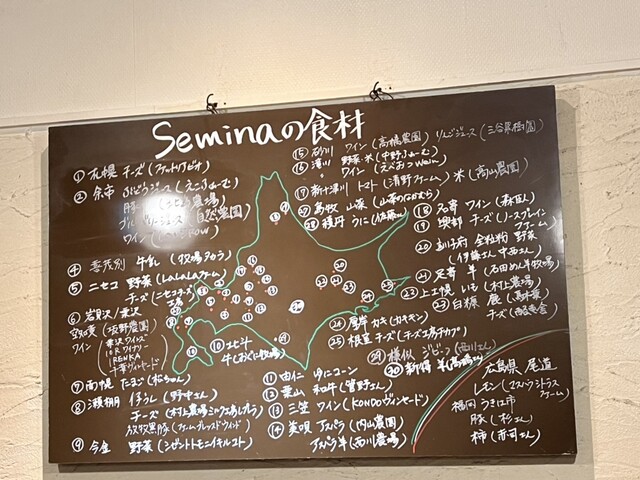 Seminaの食材
① 札幌 チーズ (ファットリアビオ)
② 余市 ぶどうジュース (えこふぁーむ)
豚
自然農園
ワイン
④ 喜茂別 牛乳 (牧場タカラ)
⑤ ニセコ 野菜 (LaLaLaファーム)
チーズ (ニセコチーズ工房)
⑥ 岩見沢/栗沢
ワイン
栗沢ワインズ
10Rワイナリー
RENKA
千葉ヴィンヤード
⑦ 南幌 たまご (松ちゃん)
⑧ 瀬棚 仔うし (野中さん)
チーズ (村上牧場ミルク工房レプレラ)
放牧黒豚 (ファームブレッスドウィンド)
⑨ 今金 野菜 (シゼントトモニイキルコト)
⑩ 北斗
牛 (おぐに牧場)
⑪ 由仁
⑫ 葉山 和牛 (菅野さん)
⑬ 三笠 ワイン (KONDOヴィンヤード)
⑭ 美唄 アスパラ (内山農園)
アスパラ羊 (西川農場)
⑮ 砂川 ワイン (高橋農園) りんごジュース (三谷果樹園)
⑯ 滝川 野菜・米 (中野ふぁーむ)
ワイン
⑰ 新十津川 トマト (清野ファーム) 米 (高山農園)
㉗ 島牧 山菜
㉘ 積丹 うに (佐藤さん)
⑱ 名寄 ワイン (森臣人)
⑲ 興部 チーズ (ノースプレインファーム)
⑳ 全粒粉 野菜
(伊藤さん 中西さん)
㉑ 足寄 羊 (石田めん羊牧場)
㉒ 上士幌 いも (村上農場)
㉓ 白糠 鹿
チーズ (酪恵舎)
㉔ 厚岸 カキ (カキキン)
㉕ 根室 チーズ (チーズ工房チカプ)
㉙ 様似 ジビーフ (西川さん)
㉚ 新得 羊
広島県 尾道
レモン (シトラスファーム)
福岡 うきは市
豚 (杉さん)
柿